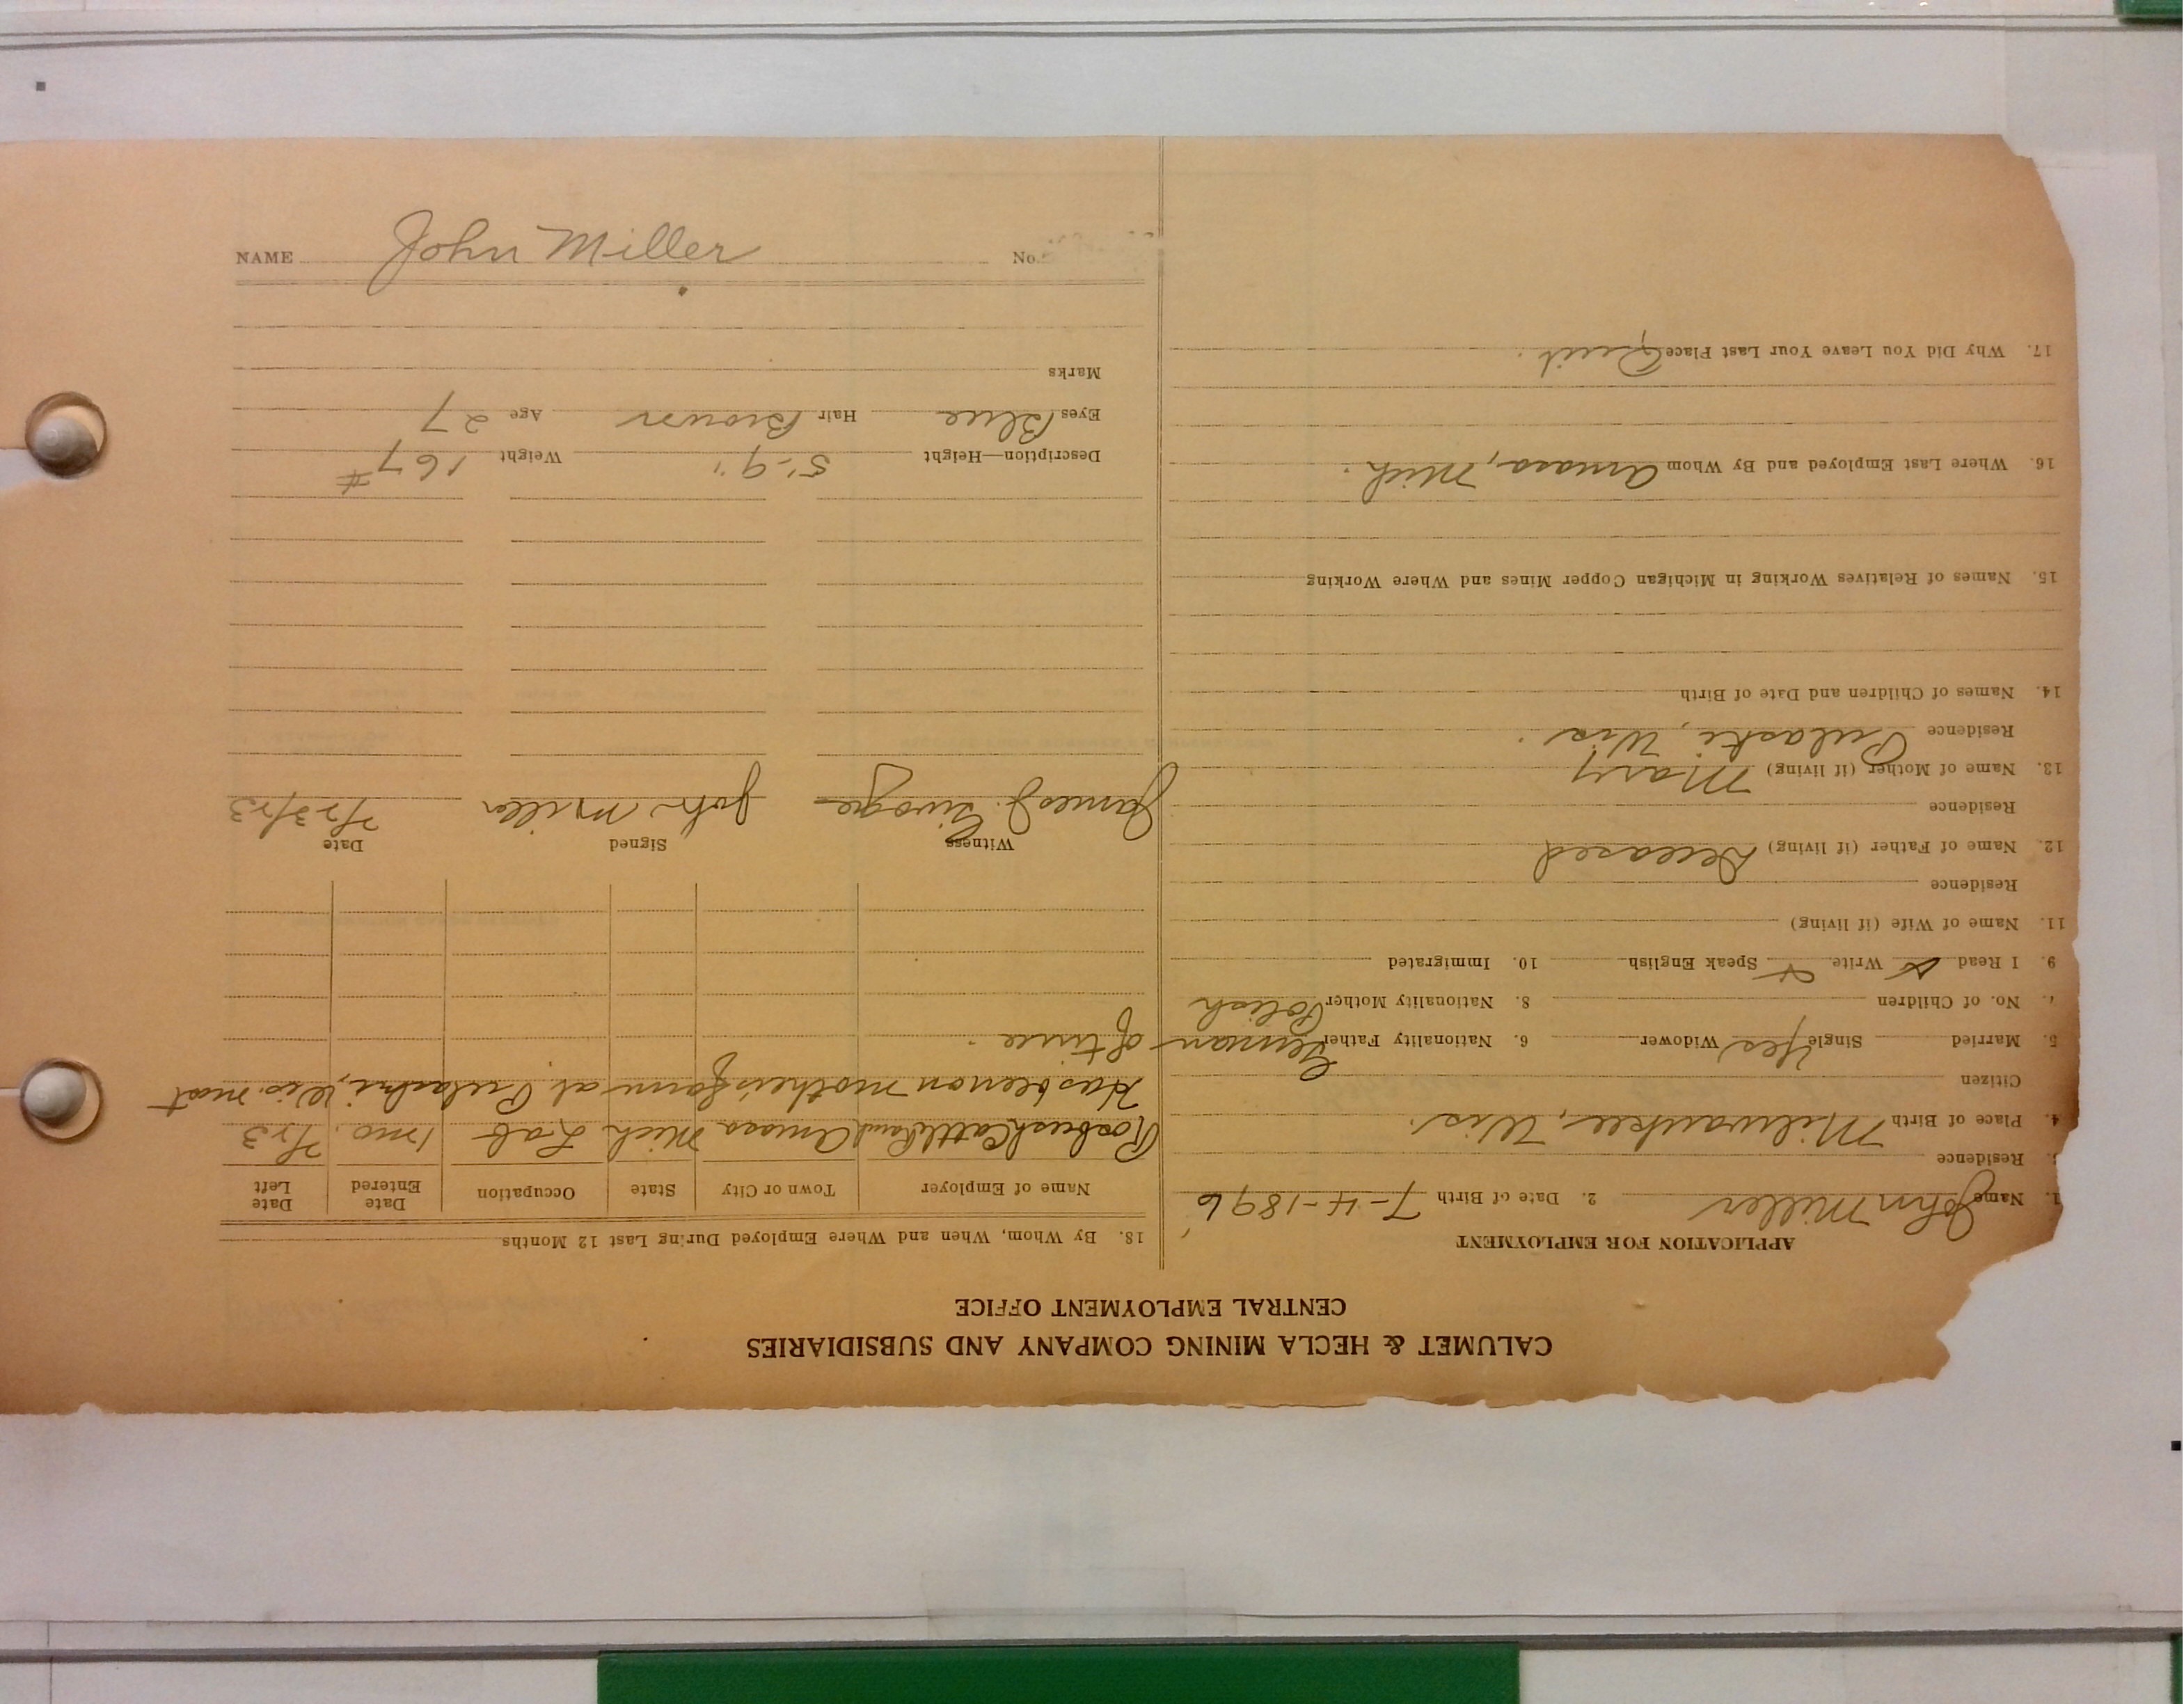 CALUMET & HECLA MINING COMPANY AND SUBSIDIARIES
CENTRAL EMPLOYMENT OFFICE
APPLICATION FOR EMPLOYMENT
1. Name John Miller 2. Date of Birth 7-4-1896
Residence
4. Place of Birth Milwaukee, Wis.
Citizen
5. Married Single Yes Widower 6. Nationality Father German
No. of Children 8. Nationality Mother Polish
9. I Read Write Speak English 10. Immigrated
11. Name of Wife (if living)
Residence
12. Name of Father (if living) Deceased
Residence
13. Name of Mother (if living) Mary
Residence Pulaski, Wis.
14. Names of Children and Date of Birth
15. Names of Relatives Working in Michigan Copper Mines and Where Working
16. Where Last Employed and By Whom Amasa, Mich.
17. Why Did You Leave Your Last Place Quit.
18. By Whom, When and Where Employed During Last 12 Months
Name of Employer Town or City State Occupation Date Entered Date Left
Cattle Amasa Mich Lab 1 mo. 7/23
Has been on mothers farm at Pulaski, Wis. most
of time.
Witness Signed Date
James J. John Miller 7/23/23
Description—Height 5'-9" Weight 167#
Eyes Blue Hair Brown Age 27
Marks
NAME John Miller No.